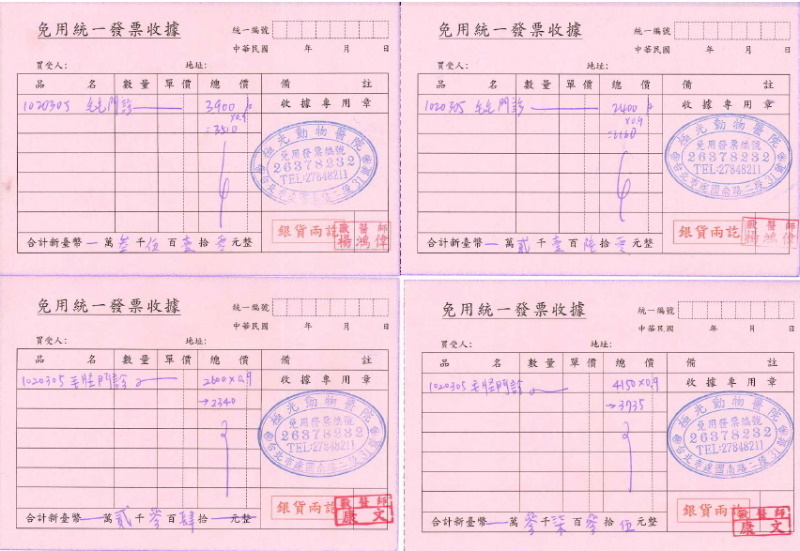 免用統一發票收據
統一編號
中華民國 年 月 日
買受人: 地址:
品 名 數量 單價 總價 備 註
1020305 門診 3900 收據專用章
×0.9
=3510
極光動物醫院
免用發票編號
26378232
TEL:27848211
銀貨兩訖 獸醫師
楊鴻偉
合計新臺幣 萬 叁 千 伍 百 壹 拾 零 元整
免用統一發票收據
統一編號
中華民國 年 月 日
買受人: 地址:
品 名 數量 單價 總價 備 註
1020305 門診 2400 收據專用章
×0.9
=2160
極光動物醫院
免用發票編號
26378232
TEL:27848211
台北市建國南路二段31號
銀貨兩訖 獸醫師
楊鴻偉
合計新臺幣 萬 貳 千 壹 百 陸 拾 零 元整
免用統一發票收據
統一編號
中華民國 年 月 日
買受人: 地址:
品 名 數量 單價 總價 備 註
1020305 毛怪門診 2600×0.9 收據專用章
→2340
極光動物醫院
免用發票編號
26378232
TEL:27848211
台北市建國南路二段31號
銀貨兩訖 獸醫師
康文
合計新臺幣 萬 貳 千 參 百 肆 拾 元整
免用統一發票收據
統一編號
中華民國 年 月 日
買受人: 地址:
品 名 數量 單價 總價 備 註
1020305 毛怪門診 4150×0.9 收據專用章
→3735
極光動物醫院
免用發票編號
26378232
TEL:27848211
台北市建國南路二段31號
銀貨兩訖 獸醫師
康文
合計新臺幣 萬 參 千 柒 百 參 拾 伍 元整